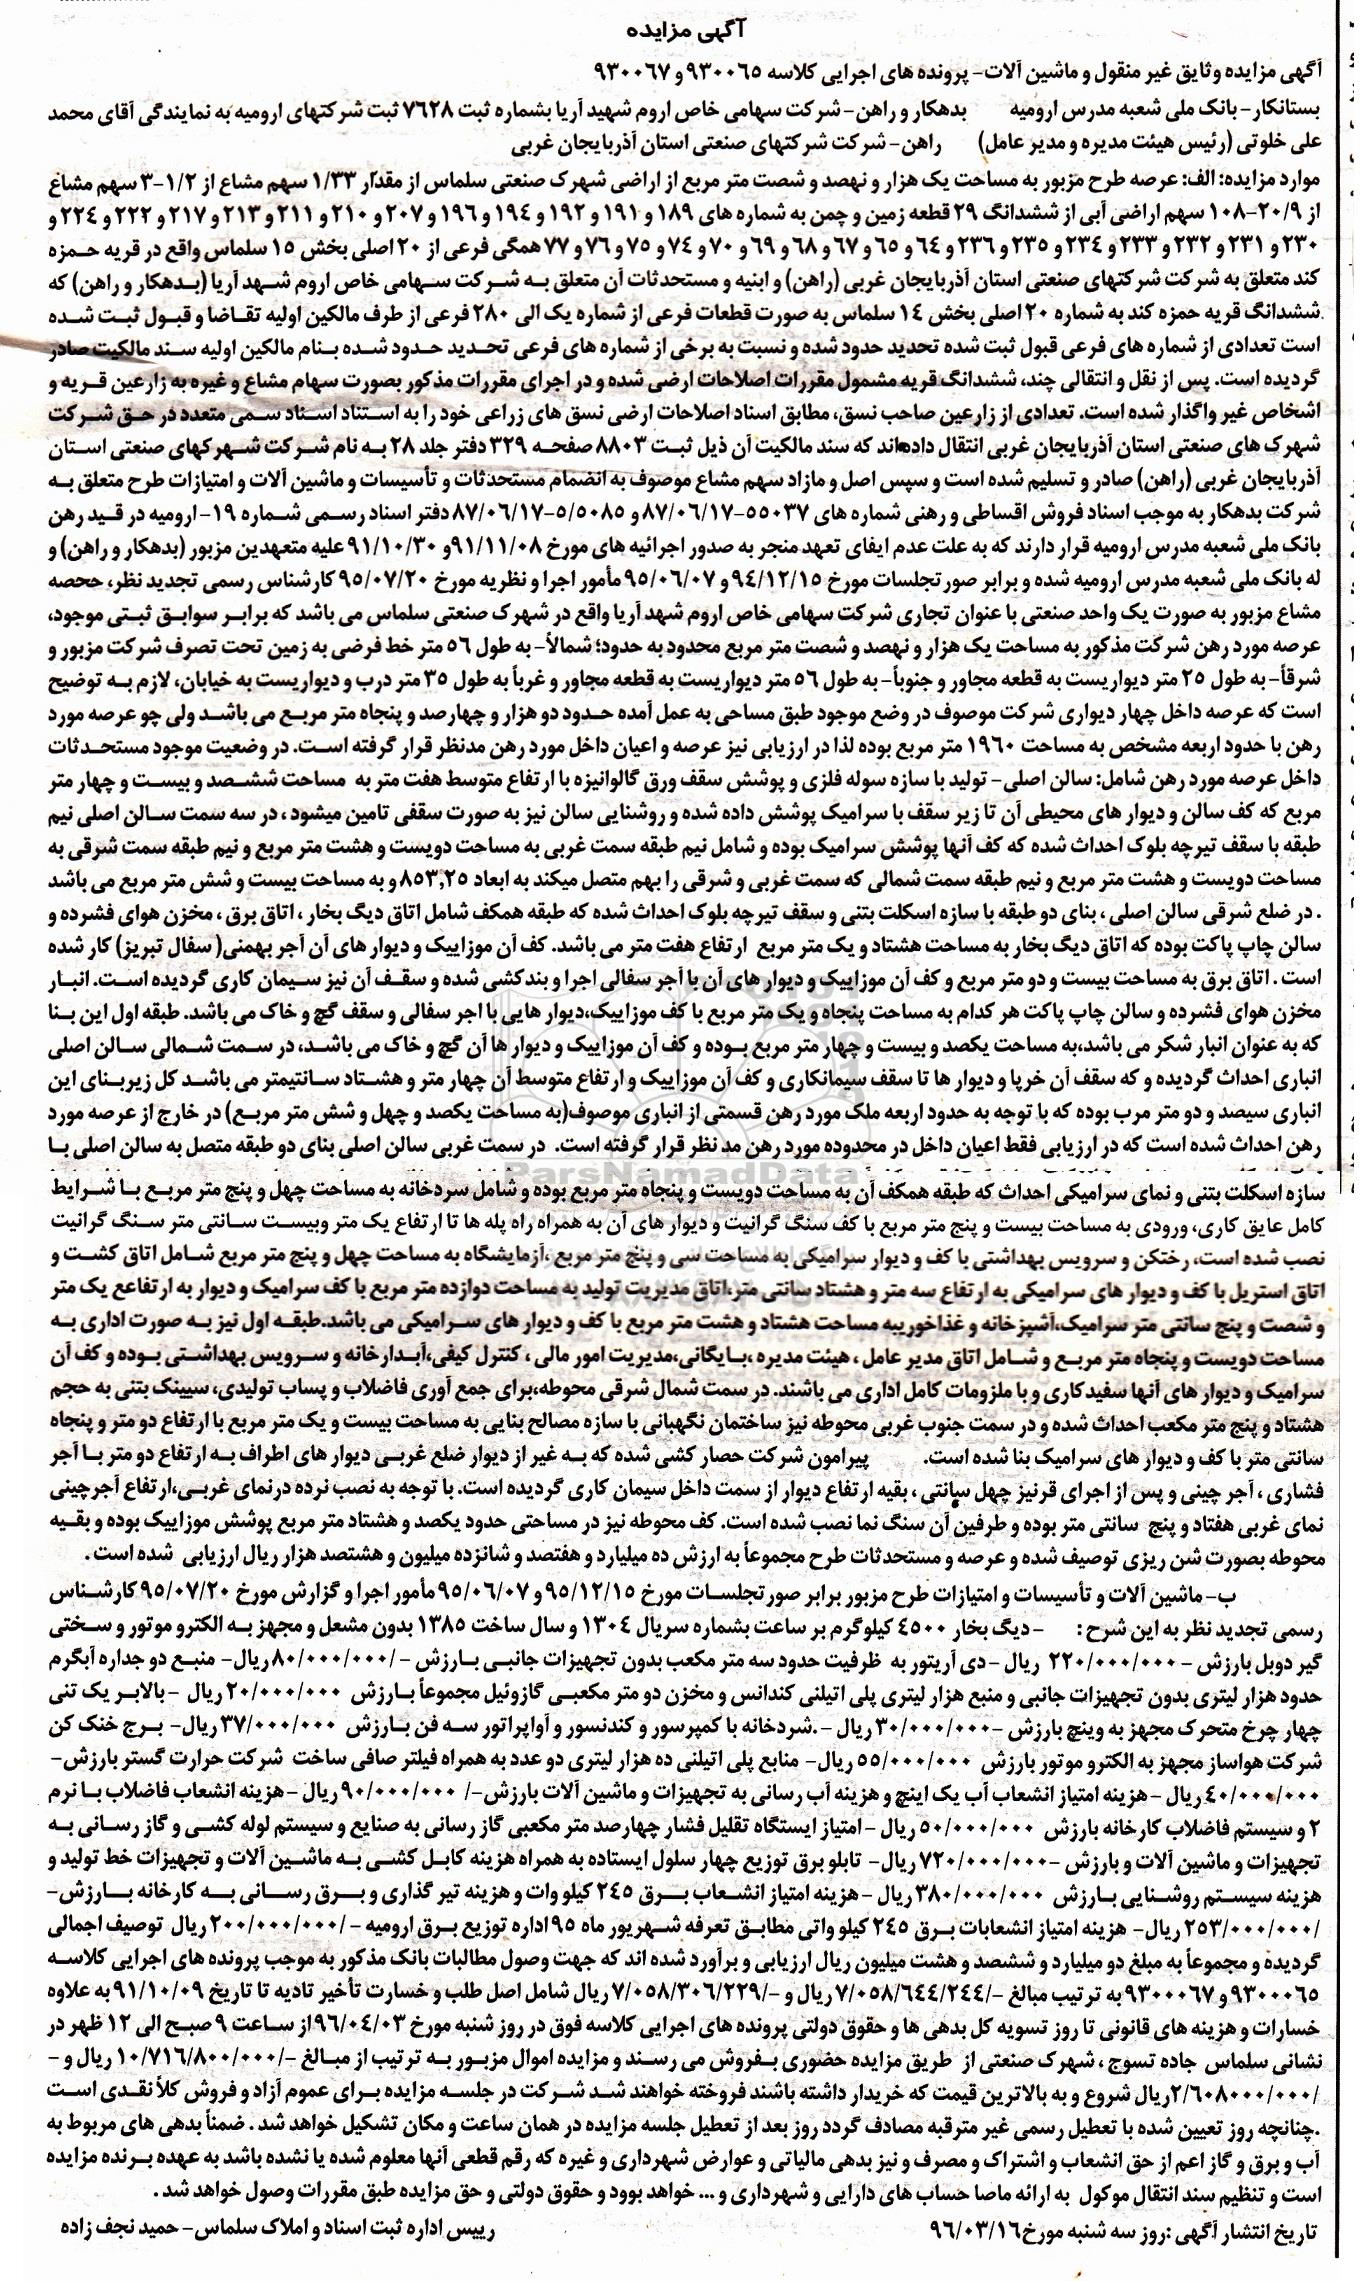 آگهی مزایده
آگهی مزایده وثایق غیر منقول و ماشین آلات- پرونده های اجرایی کلاسه ۹۳۰۰۶۵ و ۹۳۰۰۶۷
بستانکار- بانک ملی شعبه مدرس ارومیه بدهکار و راهن- شرکت سهامی خاص اروم شهید آریا بشماره ثبت ۷۶۲۸ ثبت شرکتهای ارومیه به نمایندگی آقای محمد
علی خلوتی (رئیس هیئت مدیره و مدیر عامل) راهن- شرکت شرکتهای صنعتی استان آذربایجان غربی
موارد مزایده: الف: عرصه طرح مزبور به مساحت یک هزار و نهصد و شصت متر مربع از اراضی شهرک صنعتی سلماس از مقدار ۱/۳۳ سهم مشاع از ۱/۲-۳ سهم مشاع
از ۲۰/۹-۱۰۸ سهم اراضی آبی از ششدانگ ۲۹ قطعه زمین و چمن به شماره های ۱۸۹ و ۱۹۱ و ۱۹۲ و ۱۹۴ و ۱۹۶ و ۲۰۷ و ۲۱۰ و ۲۱۱ و ۲۱۳ و ۲۱۷ و ۲۲۲ و ۲۲۴ و
۲۳۰ و ۲۳۱ و ۲۳۲ و ۲۳۳ و ۲۳۴ و ۲۳۵ و ۲۳۶ و ۶۴ و ۶۵ و ۶۷ و ۶۸ و ۶۹ و ۷۰ و ۷۴ و ۷۵ و ۷۶ و ۷۷ همگی فرعی از ۲۰ اصلی بخش ۱۵ سلماس واقع در قریه حمزه
کند متعلق به شرکت شرکتهای صنعتی استان آذربایجان غربی (راهن) و ابنیه و مستحدثات آن متعلق به شرکت سهامی خاص اروم شهد آریا (بدهکار و راهن) که
ششدانگ قریه حمزه کند به شماره ۲۰ اصلی بخش ۱۴ سلماس به صورت قطعات فرعی از شماره یک الی ۲۸۰ فرعی از طرف مالکین اولیه تقاضا و قبول ثبت شده
است تعدادی از شماره های فرعی قبول ثبت شده تحدید حدود شده و نسبت به برخی از شماره های فرعی تحدید حدود شده بنام مالکین اولیه سند مالکیت صادر
گردیده است. پس از نقل و انتقالی چند، ششدانگ قریه مشمول مقررات اصلاحات ارضی شده و در اجرای مقررات مذکور بصورت سهام مشاع و غیره به زارعین قریه و
اشخاص غیر واگذار شده است. تعدادی از زارعین صاحب نسق، مطابق اسناد اصلاحات ارضی نسق های زراعی خود را به استناد اسناد سمی متعدد در حق شرکت
شهرک های صنعتی استان آذربایجان غربی انتقال داده‌اند که سند مالکیت آن ذیل ثبت ۸۸۰۳ صفحه ۳۲۹ دفتر جلد ۲۸ به نام شرکت شهرکهای صنعتی استان
آذربایجان غربی (راهن) صادر و تسلیم شده است و سپس اصل و مازاد سهم مشاع موصوف به انضمام مستحدثات و تأسیسات و ماشین آلات و امتیازات طرح متعلق به
شرکت بدهکار به موجب اسناد فروش اقساطی و رهنی شماره های ۵۵۰۳۷-۸۷/۰۶/۱۷ و ۵/۵۰۸۵-۸۷/۰۶/۱۷ دفتر اسناد رسمی شماره ۱۹- ارومیه در قید رهن
بانک ملی شعبه مدرس ارومیه قرار دارند که به علت عدم ایفای تعهد منجر به صدور اجرائیه های مورخ ۹۱/۱۱/۰۸ و ۹۱/۱۰/۳۰ علیه متعهدین مزبور (بدهکار و راهن) و
له بانک ملی شعبه مدرس ارومیه شده و برابر صور تجلسات مورخ ۹۴/۱۲/۱۵ و ۹۵/۰۶/۰۷ مأمور اجرا و نظریه مورخ ۹۵/۰۷/۲۰ کارشناس رسمی تجدید نظر، ححصه
مشاع مزبور به صورت یک واحد صنعتی با عنوان تجاری شرکت سهامی خاص اروم شهد آریا واقع در شهرک صنعتی سلماس می باشد که برابر سوابق ثبتی موجود،
عرصه مورد رهن شرکت مذکور به مساحت یک هزار و نهصد و شصت متر مربع محدود به حدود؛ شمالاً- به طول ۵۶ متر خط فرضی به زمین تحت تصرف شرکت مزبور و
شرقاً- به طول ۲۵ متر دیواریست به قطعه مجاور و جنوباً- به طول ۵۶ متر دیواریست به قطعه مجاور و غرباً به طول ۳۵ متر درب و دیواریست به خیابان، لازم به توضیح
است که عرصه داخل چهار دیواری شرکت موصوف در وضع موجود طبق مساحی به عمل آمده حدود دو هزار و چهارصد و پنجاه متر مربع می باشد ولی چو عرصه مورد
رهن با حدود اربعه مشخص به مساحت ۱۹۶۰ متر مربع بوده لذا در ارزیابی نیز عرصه و اعیان داخل مورد رهن مدنظر قرار گرفته است. در وضعیت موجود مستحدثات
داخل عرصه مورد رهن شامل: سالن اصلی- تولید با سازه سوله فلزی و پوشش سقف ورق گالوانیزه با ارتفاع متوسط هفت متر به مساحت ششصد و بیست و چهار متر
مربع که کف سالن و دیوار های محیطی آن تا زیر سقف با سرامیک پوشش داده شده و روشنایی سالن نیز به صورت سقفی تامین میشود ، در سه سمت سالن اصلی نیم
طبقه با سقف تیرچه بلوک احداث شده که کف آنها پوشش سرامیک بوده و شامل نیم طبقه سمت غربی به مساحت دویست و هشت متر مربع و نیم طبقه سمت شرقی به
مساحت دویست و هشت متر مربع و نیم طبقه سمت شمالی که سمت غربی و شرقی را بهم متصل میکند به ابعاد ۸۵۳,۲۵ و به مساحت بیست و شش متر مربع می باشد
. در ضلع شرقی سالن اصلی ، بنای دو طبقه با سازه اسکلت بتنی و سقف تیرچه بلوک احداث شده که طبقه همکف شامل اتاق دیگ بخار ، اتاق برق ، مخزن هوای فشرده و
سالن چاپ پاکت بوده که اتاق دیگ بخار به مساحت هشتاد و یک متر مربع ارتفاع هفت متر می باشد. کف آن موزاییک و دیوار های آن آجر بهمنی( سفال تبریز) کار شده
است . اتاق برق به مساحت بیست و دو متر مربع و کف آن موزاییک و دیوار های آن با آجر سفالی اجرا و بندکشی شده و سقف آن نیز سیمان کاری گردیده است. انبار
مخزن هوای فشرده و سالن چاپ پاکت هر کدام به مساحت پنجاه و یک متر مربع با کف موزاییک،دیوار هایی با اجر سفالی و سقف گچ و خاک می باشد. طبقه اول این بنا
که به عنوان انبار شکر می باشد،به مساحت یکصد و بیست و چهار متر مربع بوده و کف آن موزاییک و دیوار ها آن گچ و خاک می باشد، در سمت شمالی سالن اصلی
انباری احداث گردیده و که سقف آن خرپا و دیوار ها تا سقف سیمانکاری و کف آن موزاییک و ارتفاع متوسط آن چهار متر و هشتاد سانتیمتر می باشد کل زیربنای این
انباری سیصد و دو متر مرب بوده که با توجه به حدود اربعه ملک مورد رهن قسمتی از انباری موصوف(به مساحت یکصد و چهل و شش متر مربع) در خارج از عرصه مورد
رهن احداث شده است که در ارزیابی فقط اعیان داخل در محدوده مورد رهن مد نظر قرار گرفته است. در سمت غربی سالن اصلی بنای دو طبقه متصل به سالن اصلی با
ParsNamadData
سازه اسکلت بتنی و نمای سرامیکی احداث که طبقه همکف آن به مساحت دویست و پنجاه متر مربع بوده و شامل سردخانه به مساحت چهل و پنج متر مربع با شرایط
کامل عایق کاری، ورودی به مساحت بیست و پنج متر مربع با کف سنگ گرانیت و دیوار های آن به همراه راه پله ها تا ارتفاع یک متر وبیست سانتی متر سنگ گرانیت
نصب شده است، رختکن و سرویس بهداشتی با کف و دیوار سرامیکی به مساحت سی و پنج متر مربع ،آزمایشگاه به مساحت چهل و پنج متر مربع شامل اتاق کشت و
اتاق استریل با کف و دیوار های سرامیکی به ارتفاع سه متر و هشتاد سانتی متر،اتاق مدیریت تولید به مساحت دوازده متر مربع با کف سرامیک و دیوار به ارتفاع یک متر
و شصت و پنج سانتی متر سرامیک،آشپزخانه و غذاخوریبه مساحت هشتاد و هشت متر مربع با کف و دیوار های سرامیکی می باشد.طبقه اول نیز به صورت اداری به
مساحت دویست و پنجاه متر مربع و شامل اتاق مدیر عامل ، هیئت مدیره ،بایگانی،مدیریت امور مالی ، کنترل کیفی،آبدارخانه و سرویس بهداشتی بوده و کف آن
سرامیک و دیوار های آنها سفیدکاری و با ملزومات کامل اداری می باشند. در سمت شمال شرقی محوطه،برای جمع آوری فاضلاب و پساب تولیدی، سپینک بتنی به حجم
هشتاد و پنج متر مکعب احداث شده و در سمت جنوب غربی محوطه نیز ساختمان نگهبانی با سازه مصالح بنایی به مساحت بیست و یک متر مربع با ارتفاع دو متر و پنجاه
سانتی متر با کف و دیوار های سرامیک بنا شده است. پیرامون شرکت حصار کشی شده که به غیر از دیوار ضلع غربی دیوار های اطراف به ارتفاع دو متر با آجر
فشاری ، آجر چینی و پس از اجرای قرنیز چهل سانتی ، بقیه ارتفاع دیوار از سمت داخل سیمان کاری گردیده است. با توجه به نصب نرده درنمای غربی،ارتفاع آجرچینی
نمای غربی هفتاد و پنج سانتی متر بوده و طرفین آن سنگ نما نصب شده است. کف محوطه نیز در مساحتی حدود یکصد و هشتاد متر مربع پوشش موزاییک بوده و بقیه
محوطه بصورت شن ریزی توصیف شده و عرصه و مستحدثات طرح مجموعاً به ارزش ده میلیارد و هفتصد و شانزده میلیون و هشتصد هزار ریال ارزیابی شده است .
ب- ماشین آلات و تأسیسات و امتیازات طرح مزبور برابر صور تجلسات مورخ ۹۵/۱۲/۱۵ و ۹۵/۰۶/۰۷ مأمور اجرا و گزارش مورخ ۹۵/۰۷/۲۰ کارشناس
رسمی تجدید نظر به این شرح : - دیگ بخار ۴۵۰۰ کیلوگرم بر ساعت بشماره سریال ۱۳۰۴ و سال ساخت ۱۳۸۵ بدون مشعل و مجهز به الکترو موتور و سختی
گیر دوبل بارزش - ۲۲۰/۰۰۰/۰۰۰ ریال - دی آریتور به ظرفیت حدود سه متر مکعب بدون تجهیزات جانبی بارزش - /۸۰/۰۰۰/۰۰۰ ریال- منبع دو جداره آبگرم
حدود هزار لیتری بدون تجهیزات جانبی و منبع هزار لیتری پلی اتیلنی کندانس و مخزن دو متر مکعبی گازوئیل مجموعاً بارزش ۲۰/۰۰۰/۰۰۰ ریال - بالابر یک تنی
چهار چرخ متحرک مجهز به وینچ بارزش -۳۰/۰۰۰/۰۰۰ ریال -.شردخانه با کمپرسور و کندنسور و آواپراتور سه فن بارزش ۳۷/۰۰۰/۰۰۰ ریال- برج خنک کن
شرکت هواساز مجهز به الکترو موتور بارزش ۵۵/۰۰۰/۰۰۰ ریال- منابع پلی اتیلنی ده هزار لیتری دو عدد به همراه فیلتر صافی ساخت شرکت حرارت گستر بارزش-
۴۰/۰۰۰/۰۰۰ ریال - هزینه امتیاز انشعاب آب یک اینچ و هزینه آب رسانی به تجهیزات و ماشین آلات بارزش-/ ۹۰/۰۰۰/۰۰۰ ریال - هزینه انشعاب فاضلاب با نرم
۲ و سیستم فاضلاب کارخانه بارزش ۵۰/۰۰۰/۰۰۰ ریال - امتیاز ایستگاه تقلیل فشار چهارصد متر مکعبی گاز رسانی به صنایع و سیستم لوله کشی و گاز رسانی به
تجهیزات و ماشین آلات و بارزش -۷۲۰/۰۰۰/۰۰۰ ریال- تابلو برق توزیع چهار سلول ایستاده به همراه هزینه کابل کشی به ماشین آلات و تجهیزات خط تولید و
هزینه سیستم روشنایی بارزش ۳۸۰/۰۰۰/۰۰۰ ریال - هزینه امتیاز انشعاب برق ۲۴۵ کیلو وات و هزینه تیر گذاری و برق رسانی به کارخانه بارزش-
/۲۵۳/۰۰۰/۰۰۰ ریال- هزینه امتیاز انشعابات برق ۲۴۵ کیلو واتی مطابق تعرفه شهریور ماه ۹۵ اداره توزیع برق ارومیه - /۲۰۰/۰۰۰/۰۰۰ ریال توصیف اجمالی
گردیده و مجموعاً به مبلغ دو میلیارد و ششصد و هشت میلیون ریال ارزیابی و برآورد شده اند که جهت وصول مطالبات بانک مذکور به موجب پرونده های اجرایی کلاسه
۹۳۰۰۰۶۵ و ۹۳۰۰۰۶۷ به ترتیب مبالغ -/۷/۰۵۸/۶۴۴/۲۴۴ ریال و -/۷/۰۵۸/۳۰۶/۲۲۹ ریال شامل اصل طلب و خسارت تأخیر تادیه تا تاریخ ۹۱/۱۰/۰۹ به علاوه
خسارات و هزینه های قانونی تا روز تسویه کل بدهی ها و حقوق دولتی پرونده های اجرایی کلاسه فوق در روز شنبه مورخ ۹۶/۰۴/۰۳ از ساعت ۹ صبح الی ۱۲ ظهر در
نشانی سلماس جاده تسوج ، شهرک صنعتی از طریق مزایده حضوری بفروش می رسند و مزایده اموال مزبور به ترتیب از مبالغ -/۱۰/۷۱۶/۸۰۰/۰۰۰ ریال و -
/۲/۶۰۸۰۰۰/۰۰۰ ریال شروع و به بالاترین قیمت که خریدار داشته باشند فروخته خواهند شد شرکت در جلسه مزایده برای عموم آزاد و فروش کلاً نقدی است
.چنانچه روز تعیین شده با تعطیل رسمی غیر مترقبه مصادف گردد روز بعد از تعطیل جلسه مزایده در همان ساعت و مکان تشکیل خواهد شد . ضمناً بدهی های مربوط به
آب و برق و گاز اعم از حق انشعاب و اشتراک و مصرف و نیز بدهی مالیاتی و عوارض شهرداری و غیره که رقم قطعی آنها معلوم شده یا نشده باشد به عهده برنده مزایده
است و تنظیم سند انتقال موکول به ارائه ماصا حساب های دارایی و شهرداری و ... خواهد بوود و حقوق دولتی و حق مزایده طبق مقررات وصول خواهد شد .
تاریخ انتشار آگهی :روز سه شنبه مورخ ۹۶/۰۳/۱۶ رییس اداره ثبت اسناد و املاک سلماس- حمید نجف زاده